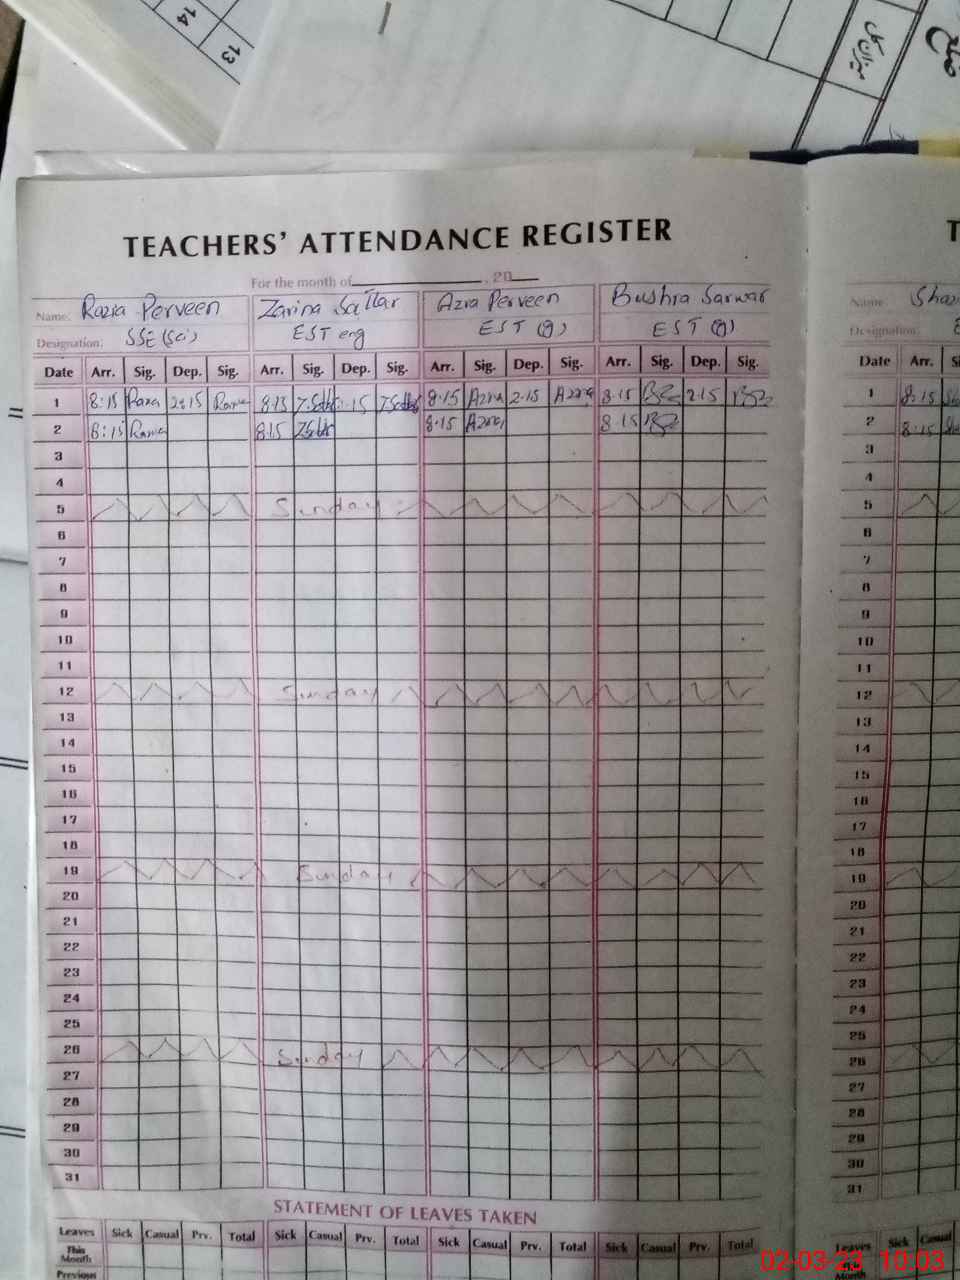 14
13
TEACHERS' ATTENDANCE REGISTER
For the month of , 20
Name: Razia Perveen Zarina Sattar Azra Perveen Bushra Sarwar Name:
Designation: SSE (Sci) EST eng EST (g) EST (g) Designation:
Date Arr. Sig. Dep. Sig. Arr. Sig. Dep. Sig. Arr. Sig. Dep. Sig. Arr. Sig. Dep. Sig. Date Arr.
1 8:15 2:15 8:15 8:15 Azra 2:15 Azra 8:15 2:15 1 8:15
2 8:15 8:15 8:15 Azra 8:15 2 8:15
3 3
4 4
5 Sunday 5
6 6
7 7
8 8
9 9
10 10
11 11
12 Sunday 12
13 13
14 14
15 15
16 16
17 17
18 18
19 Sunday 19
20 20
21 21
22 22
23 23
24 24
25 25
26 Sunday 26
27 27
28 28
29 29
30 30
31 31
STATEMENT OF LEAVES TAKEN
Leaves Sick Casual Prv. Total Sick Casual Prv. Total Sick Casual Prv. Total Sick Casual Prv. Total Leaves Sick Casual
This Month
Previous
02-03-23 10:03